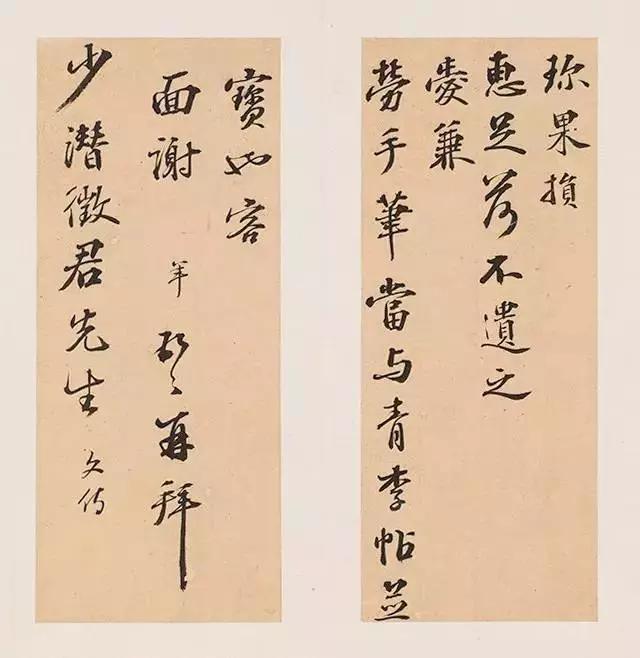 珎果損
惠足荷不遺之
愛兼
勞手筆當与青李帖並
寳也容
面謝 再拜
少潛徵君先生 文侍